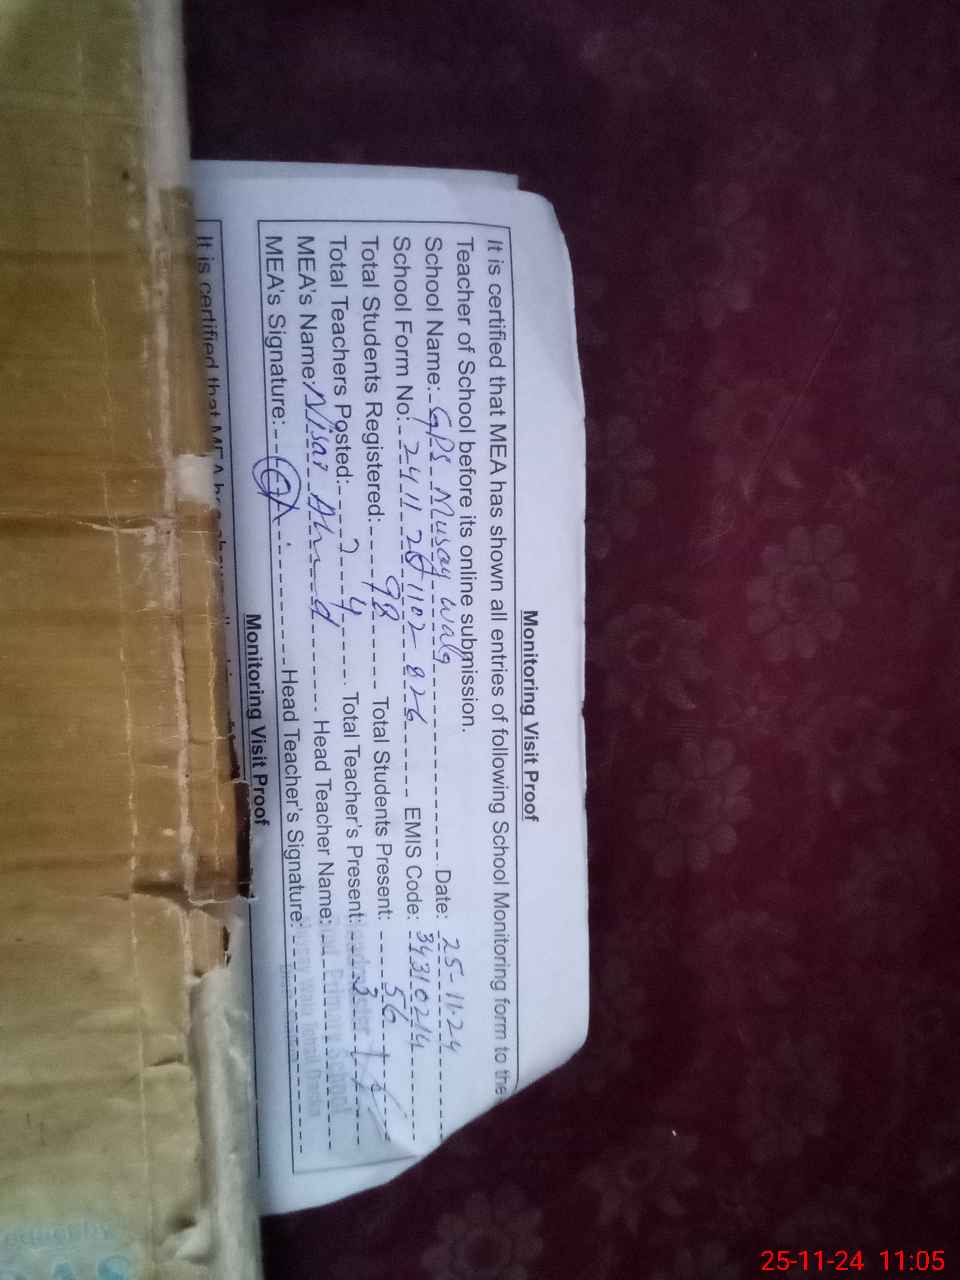 Monitoring Visit Proof
It is certified that MEA has shown all entries of following School Monitoring form to the
Teacher of School before its online submission.
School Name:- GPS Musay Wala Date: 25-11-24
School Form No:- 2411 201102-826 EMIS Code: 34310214
Total Students Registered: 98 Total Students Present: 56
Total Teachers Posted: 4 Total Teacher's Present: 3
MEA's Name: Nisar Ahmad Head Teacher Name:
MEA's Signature: Head Teacher's Signature:
Monitoring Visit Proof
It is certified that MEA
25-11-24 11:05